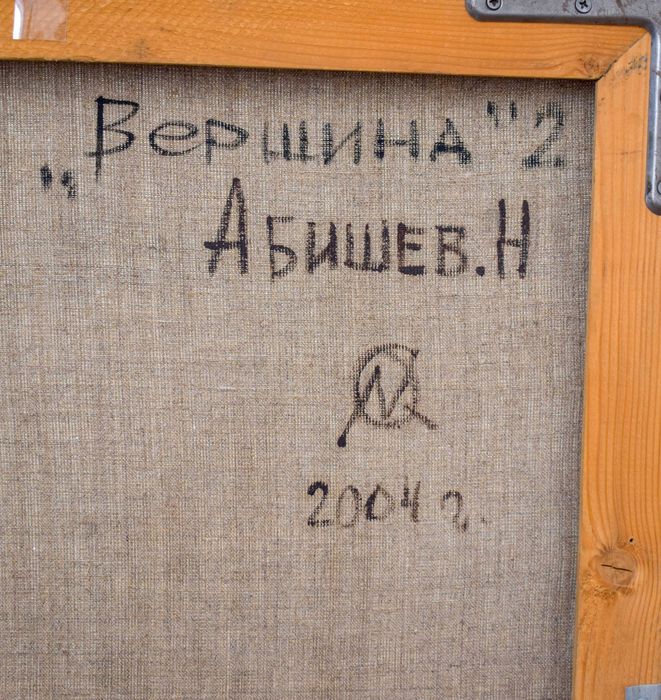 „Вершина" 2
Абишев. Н
2004 г.